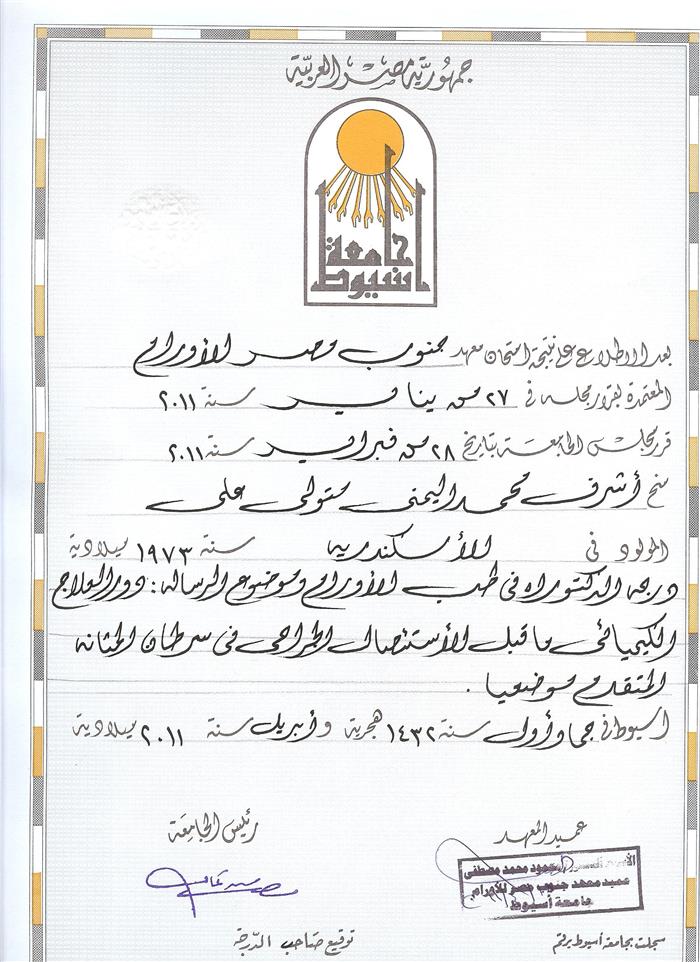 جمهورية مصر العربية
جامعة
أسيوط
بعد الاطلاع على نتيجة امتحان معهد جنوب مصر للأورام
المعتمدة بقرار مجلسه في ٢٧ من يناير سنة ٢٠١١
قرر مجلس الجامعة بتاريخ ٢٨ من فبراير سنة ٢٠١١
منح أشرف محمد اليمنى متولى على
المولود في الأسكندريه سنة ١٩٧٣ ميلادية
درجه الدكتوراه فى طب الأورام وموضوع الرساله: دور العلاج
الكيميائى ما قبل الأستئصال الجراحى فى سرطان المثانه
المتقدم موضعيا .
أسيوط في جماد أول سنة ١٤٣٢ هجرية وأبريل سنة ٢٠١١ ميلادية
عميد المعهد
رئيس الجامعة
محمود محمد مصطفى
عميد معهد جنوب مصر للأورام
جامعة أسيوط
سجلت بجامعة أسيوط برقم
توقيع صاحب الدرجة